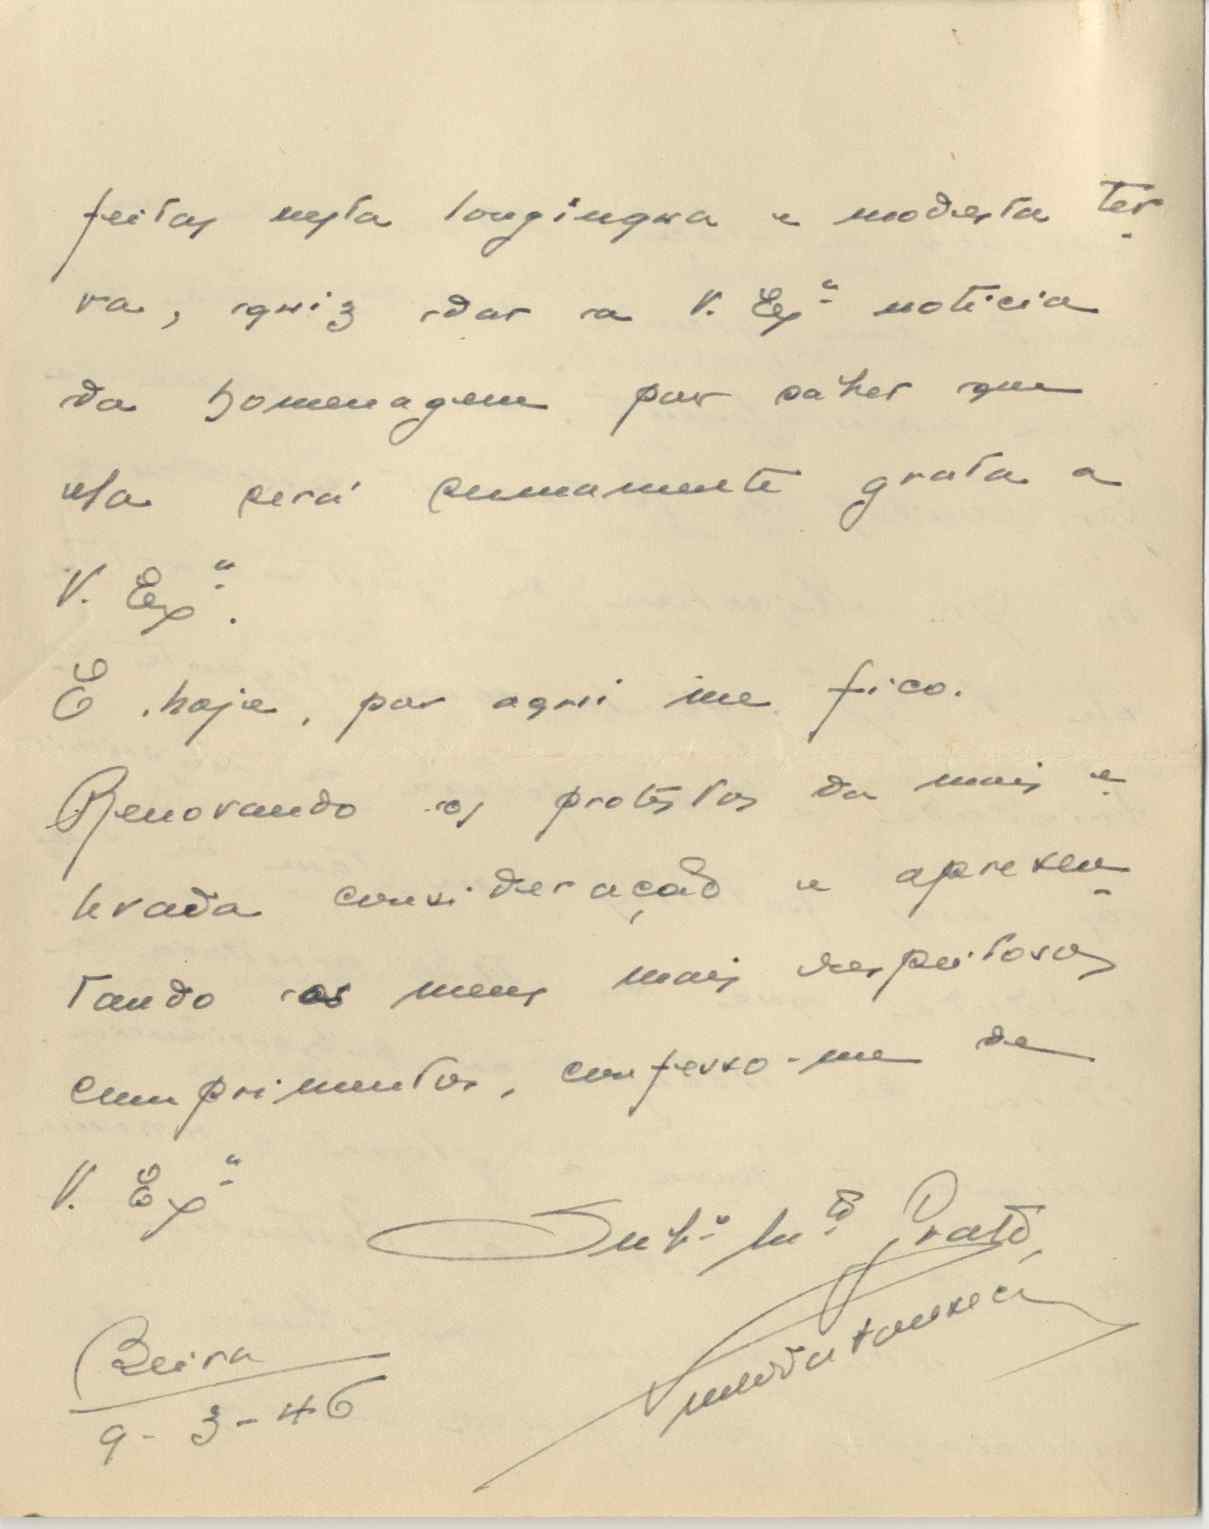 feitas nesta longinqua e modesta ter-
ra, quiz dar a V. Exª noticia
da homenagem por saber que
ela será sumamente grata a
V. Exª.
E hoje, por aqui me fico.
Renovando os protestos da mais e-
levada consideração e apresen-
tando os meus mais respeitosos
cumprimentos, confesso-me de
V. Exª
Subº Mtº Grato,
Beira
9-3-46